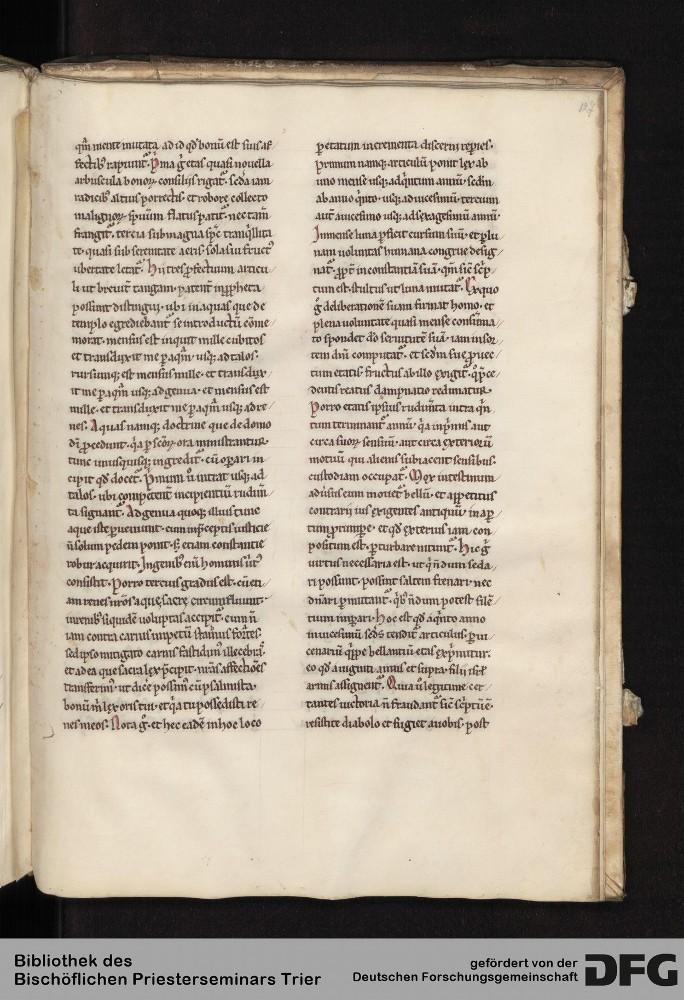 qm̄ mente mutata ad id qd̓ bonū est suis af
fectibꝰ rapiunt᷑. Pͥma g̊ etas quasi nouella
arbuscula bonoꝝ consilijs rigat᷑. Scd̓a iam
radicibꝰ altius porrectis et robore collecto
malignoꝝ sp̄uum flatus patit᷑ nec tam̄
frangit᷑. tercia sub magna sp̄c tranq̓llita
te quasi sub serenitate aeris sola sui fructꝰ
ubertate letat᷑. Hii tres ꝓfectuum articu
li ut breuit᷑ tangam patent in ꝓpheta
possunt distingui ubi in aquas que de
templo egrediebant᷑ se introductū cōme
morat. mensus est inquit mille cubitos
et transduxit me ꝑ aqm̄ usqꝫ ad talos.
rursumqꝫ est mensus mille et transdux
it me ꝑ aqm̄ usqꝫ ad genua et mensus est
mille et transduxit me ꝑ aqm̄ usqꝫ ad re
nes. Aquas namqꝫ doctrine que de domo
dn̄i ꝓcedunt. q̓a ꝑ sc̄oꝝ ora ministrantur
tunc unusquisqꝫ ingredit᷑ cū oꝑari in
cipit qd̓ docet᷑. Pͥmum u̓ intrat usqꝫ ad
talos ubi competent᷑ incipientiū rudim̄
ta signant᷑. Ad genua quoqꝫ illius tunc
aque iste ꝑueniunt cum in p̄ceptis iusticie
n̄ solum pedem ponit sꝫ etiam constantie
robur acquirit. In genibꝰ eni̅ hominis uͥtꝰ
consistit. Porro tercius gradus est. cū eti
am renes nr̄os aque sacre circumfluunt.
in renibꝰ siquidē uoluptas accipit᷑. cum g̊
iam contra carius impetū stamus fortes.
sed ipso mitigato carnis fastidimꝰ illecebrā.
et ad ea que sacra lex p̄cipit nr̄as affectiōes
transferimꝰ. ut dic̓e possimꝰ cū psalmista.
bonū m̓ lex oris tui et q̓a tu possedisti re
nes meos. Nota g̊. et hec eadē in hoc loco
ꝑ etatum incrementa discerni reꝑies.
Primum namqꝫ articulū ponit lex ab
uno mense usqꝫ ad q̓ntum annū. sc̄dm̄
ab anno q̓nto usqꝫ ad uicesimū. tercium
aut̄ a uicesimo usqꝫ ad sexagesimū annū.
In mense luna ꝑficit cursum suū. et ꝑ lu
nam uoluntas humana congrue desig
nat᷑. ꝓpt̓ inconstantiā suā. qm̄ sic̄ sc̓p
tum est stultus ut luna mutat᷑. Ex quo
g̊ deliberationē suam firmat homo. et
plena uoluntate quasi mense consūma
to spondet dō seruitutē suā. iam insor
tem dn̄i computat᷑. et sc̄dm̄ sue ꝓuec
tum etatis fructus ab illo exigit᷑. q̓ p̄ce
dentis reatus dampnatio redimatur.
Porro etatis ipsius rudim̄ta intra q̓n
tum terminant᷑ annū. q̓a inpͥmis aut
circa suoꝝ sensuū. aut circa exterioꝝ
motuū qui alienis subiacent sensibus.
custodiam occupat᷑. Mox intestinum
aduersus eum mouet᷑ bellū. et appetitus
contrarij ius exigentes antiquū. in aꝑ
tum ꝓrumpe̅. et qd̓ exterius iam con
positum est. ꝑturbare nitunt᷑. Hic g̊
uirtus necessaria est. ut q̓ n̄dum seda
ri possunt. possint saltem frenari. nec
dn̄ari ꝑmittant᷑. q̓bꝰ n̄dum potest silē
tium inpari. Hoc est qd̓ a q̓nto anno
in uicesimū scd̓s tendit᷑ articulus. ꝑ ui
cenariū q̓ppe bellantiū etas exp̓mitur.
eo qd̓ a uiginti annis et supra filij isr̄l
armis assignent᷑. Quia u̓ legitime cer
tantes uictoria n̄ fraudant᷑. sic̄ sc̓ptū ē.
resistite diabolo et fugiet a uobis. post
Bibliothek des
Bischöflichen Priesterseminars Trier
gefördert von der
Deutschen Forschungsgemeinschaft
DFG